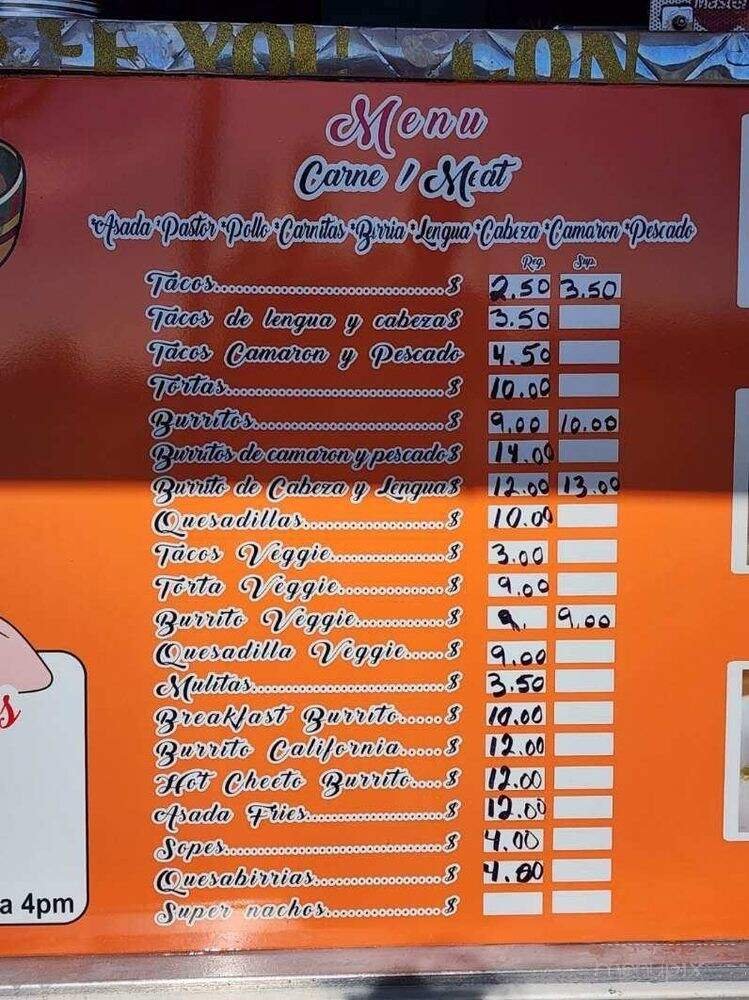 Menu
Carne / Meat
*Asada *Pastor *Pollo *Carnitas *Birria *Lengua *Cabeza *Camaron *Pescado
Reg. Sup.
Tacos....................$ 2.50 3.50
Tacos de lengua y cabeza$ 3.50
Tacos Camaron y Pescado 4.50
Tortas....................$ 10.00
Burritos....................$ 9.00 10.00
Burritos de camaron y pescado$ 14.00
Burrito de Cabeza y Lengua$ 12.00 13.00
Quesadillas....................$ 10.00
Tacos Veggie....................$ 3.00
Torta Veggie....................$ 9.00
Burrito Veggie....................$ 9.00
Quesadilla Veggie.....$ 9.00
Mulitas....................$ 3.50
Breakfast Burrito.....$ 10.00
Burrito California......$ 12.00
Hot Cheeto Burrito....$ 12.00
Asada Fries....................$ 12.00
Sopes....................$ 4.00
Quesabirrias....................$ 4.00
Super nachos....................$
s
a 4pm
menupix